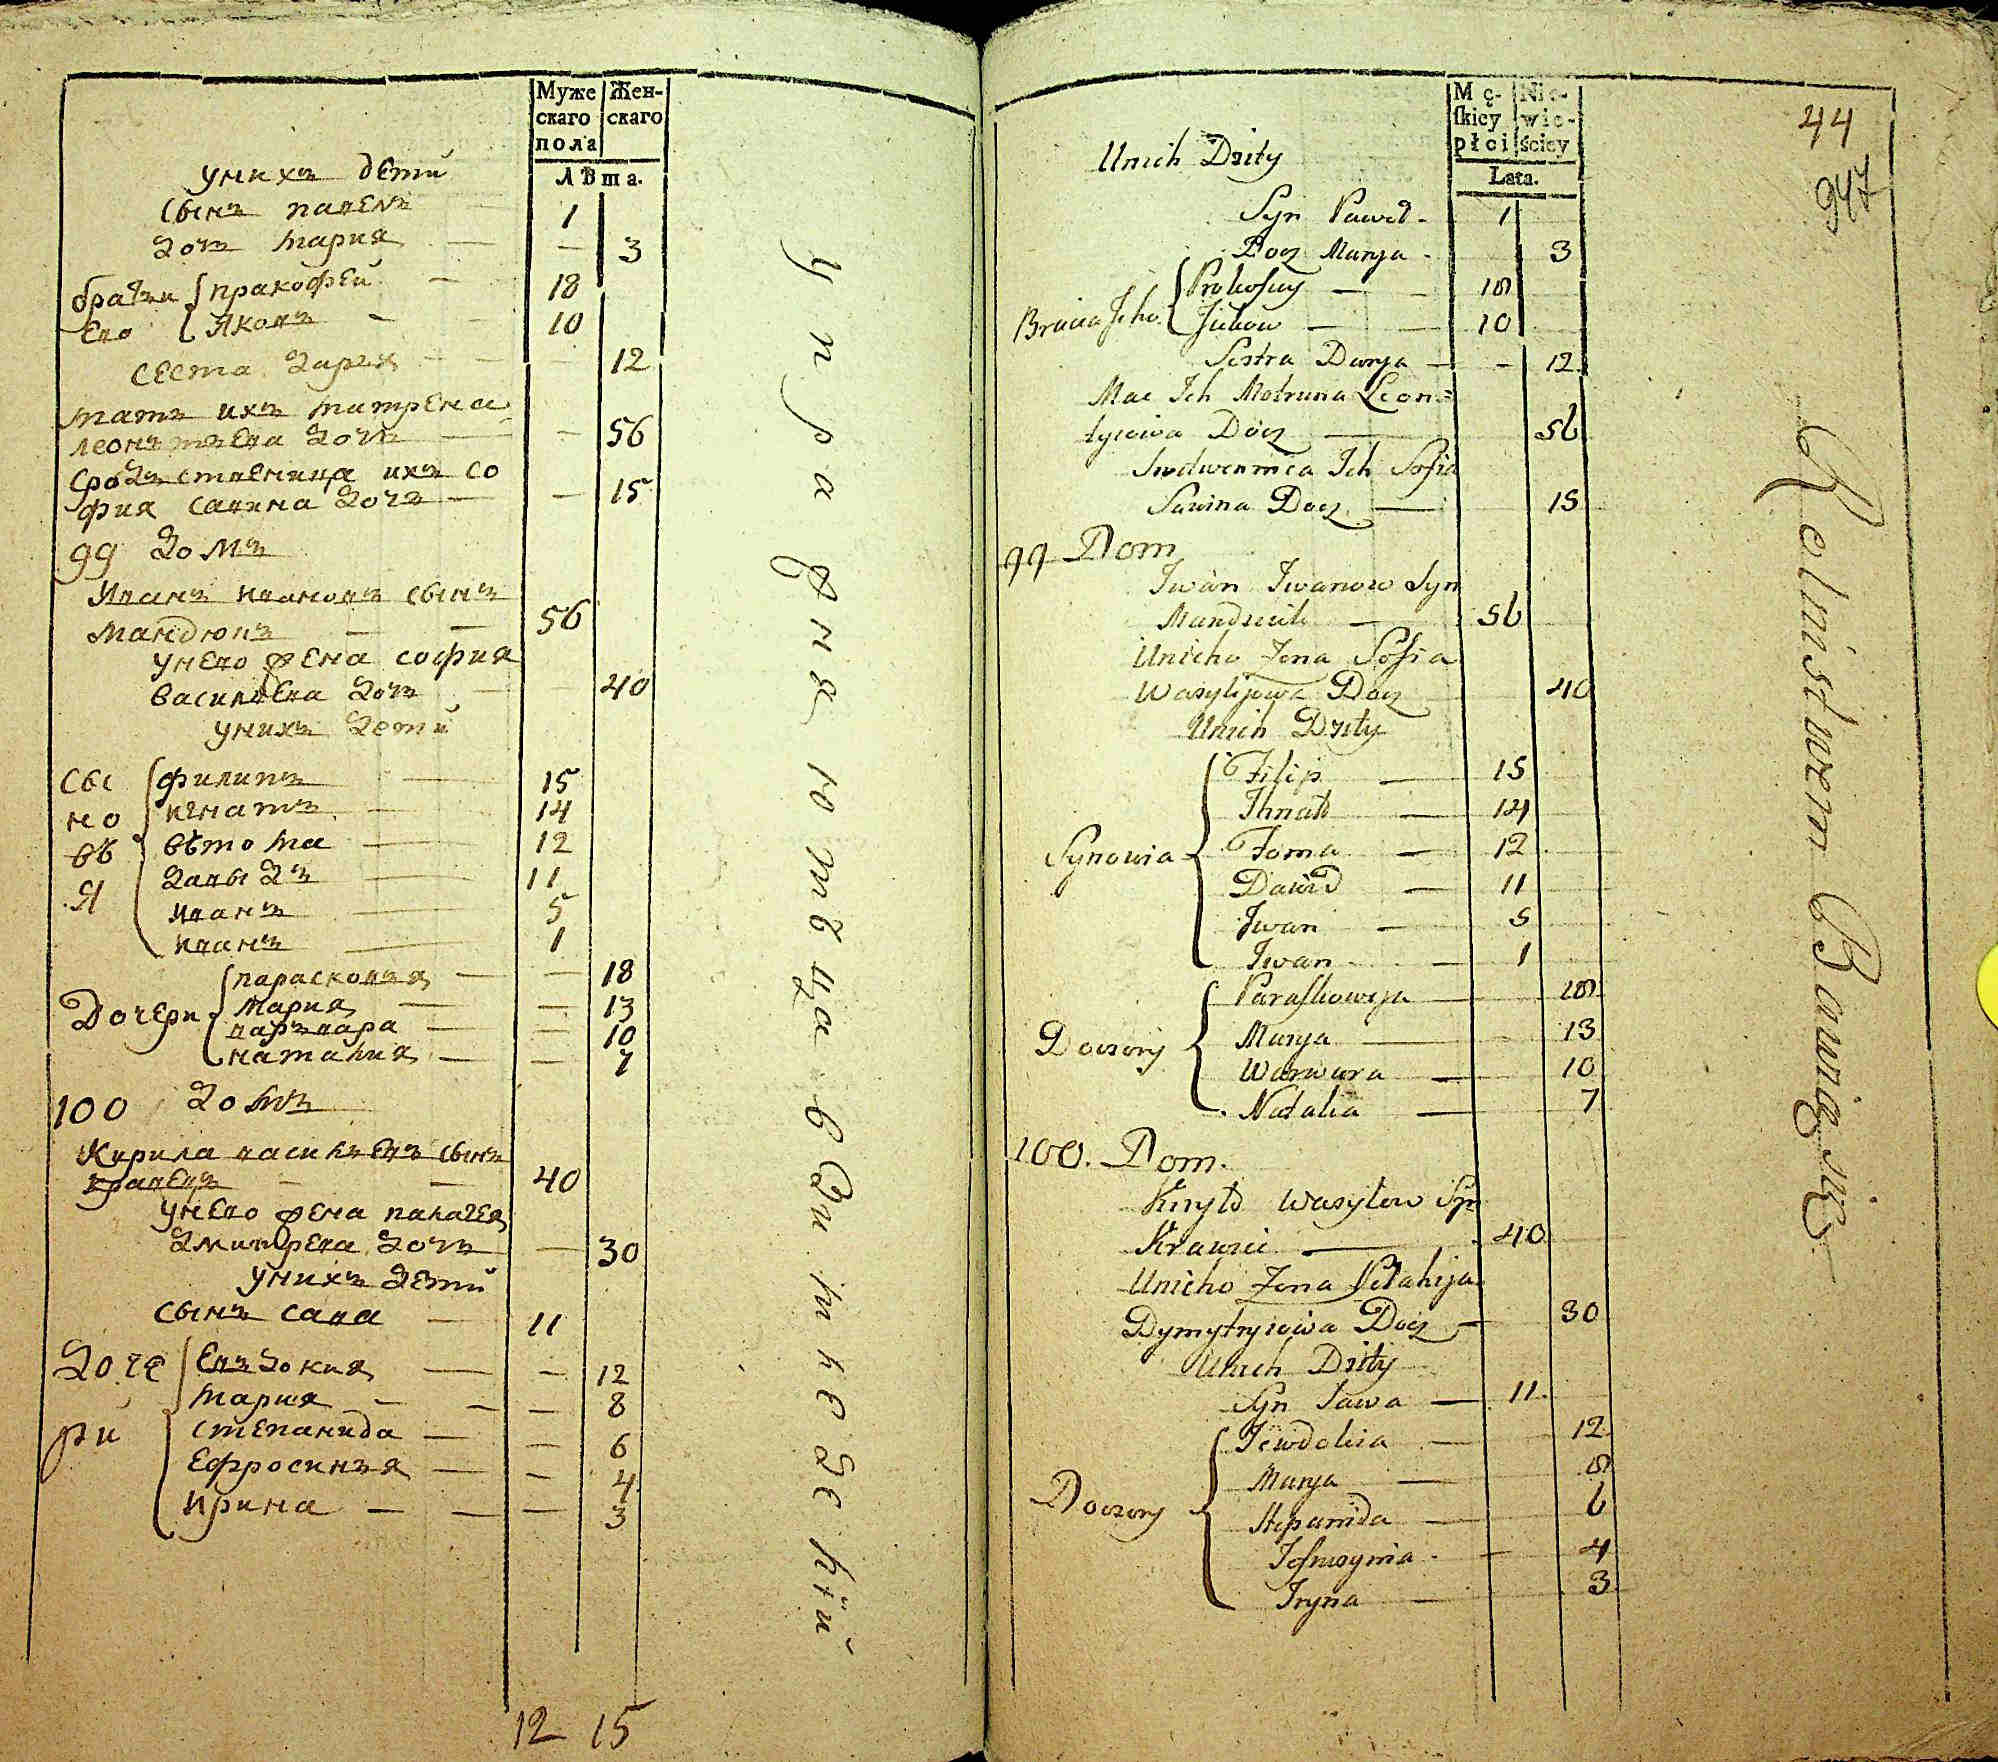 Муже Жен-
скаго скаго
пола
Лѣта.
унихъ дети
сынъ павелъ 1
дочъ мария — 3
братьи { пракофей — 18
его { яковъ — 10
сеста дарья — 12
матъ ихъ матрена
леонътьева дочъ — 56
сродъственица ихъ со
фия савина дочъ — 15
99 домъ
Иванъ ивановъ сынъ
мандюкъ — 56
унего жена софия
василъева дочъ — 40
унихъ дети
сы { филипъ — 15
но игнатъ — 14
въ вѣтома — 12
я давыдъ — 11
иванъ — 5
иванъ — 1
Дочери { парасковъя — 18
мария — 13
варъвара — 10
наталия — 7
100 домъ
Кирила василъевъ сынъ
кравецъ — 40
унего жена палагея
дмитрева дочъ — 30
унихъ дети
сынъ сава — 11
доче { евъдокия — 12
мария — 8
ри степанида — 6
ефросинъя — 4
ирина — 3
12 15
управляютъца
Mę- Nie-
skiey wie-
płci ściey
Lata.
44
947
Unich Dzity
Syn Paweł - 1
Docz Marya - 3
Bracia Jeho { Prokofiey — 18
Jakow — 10
Sestra Darya — 12
Mac Ich Motruna Leon=
tyiowa Docz — 56
Srodwennica Ich Sofia
Sawina Docz — 15
99 Dom
Iwan Iwanow Syn
Mandziuk — 56
Unieho Zona Sofia
Wasylijowa Docz 40
Unich Dzity
Synowia { Filip — 15
Ihnat — 14
Foma — 12
Dawid — 11
Iwan — 5
Iwan — 1
Doczery { Paraskowija — 18
Marya — 13
Warwara — 10
Natalia — 7
100. Dom.
Kiryło Wasylow Syn
Krawiec — 40
Unieho Zona Pelahija
Dymytryiowa Docz — 30
Unich Dzity
Syn Sawa — 11
Doczery { Jewdokia — 12
Marya — 8
Stepanida — 6
Jefrosynia - 4
Iryna — 3